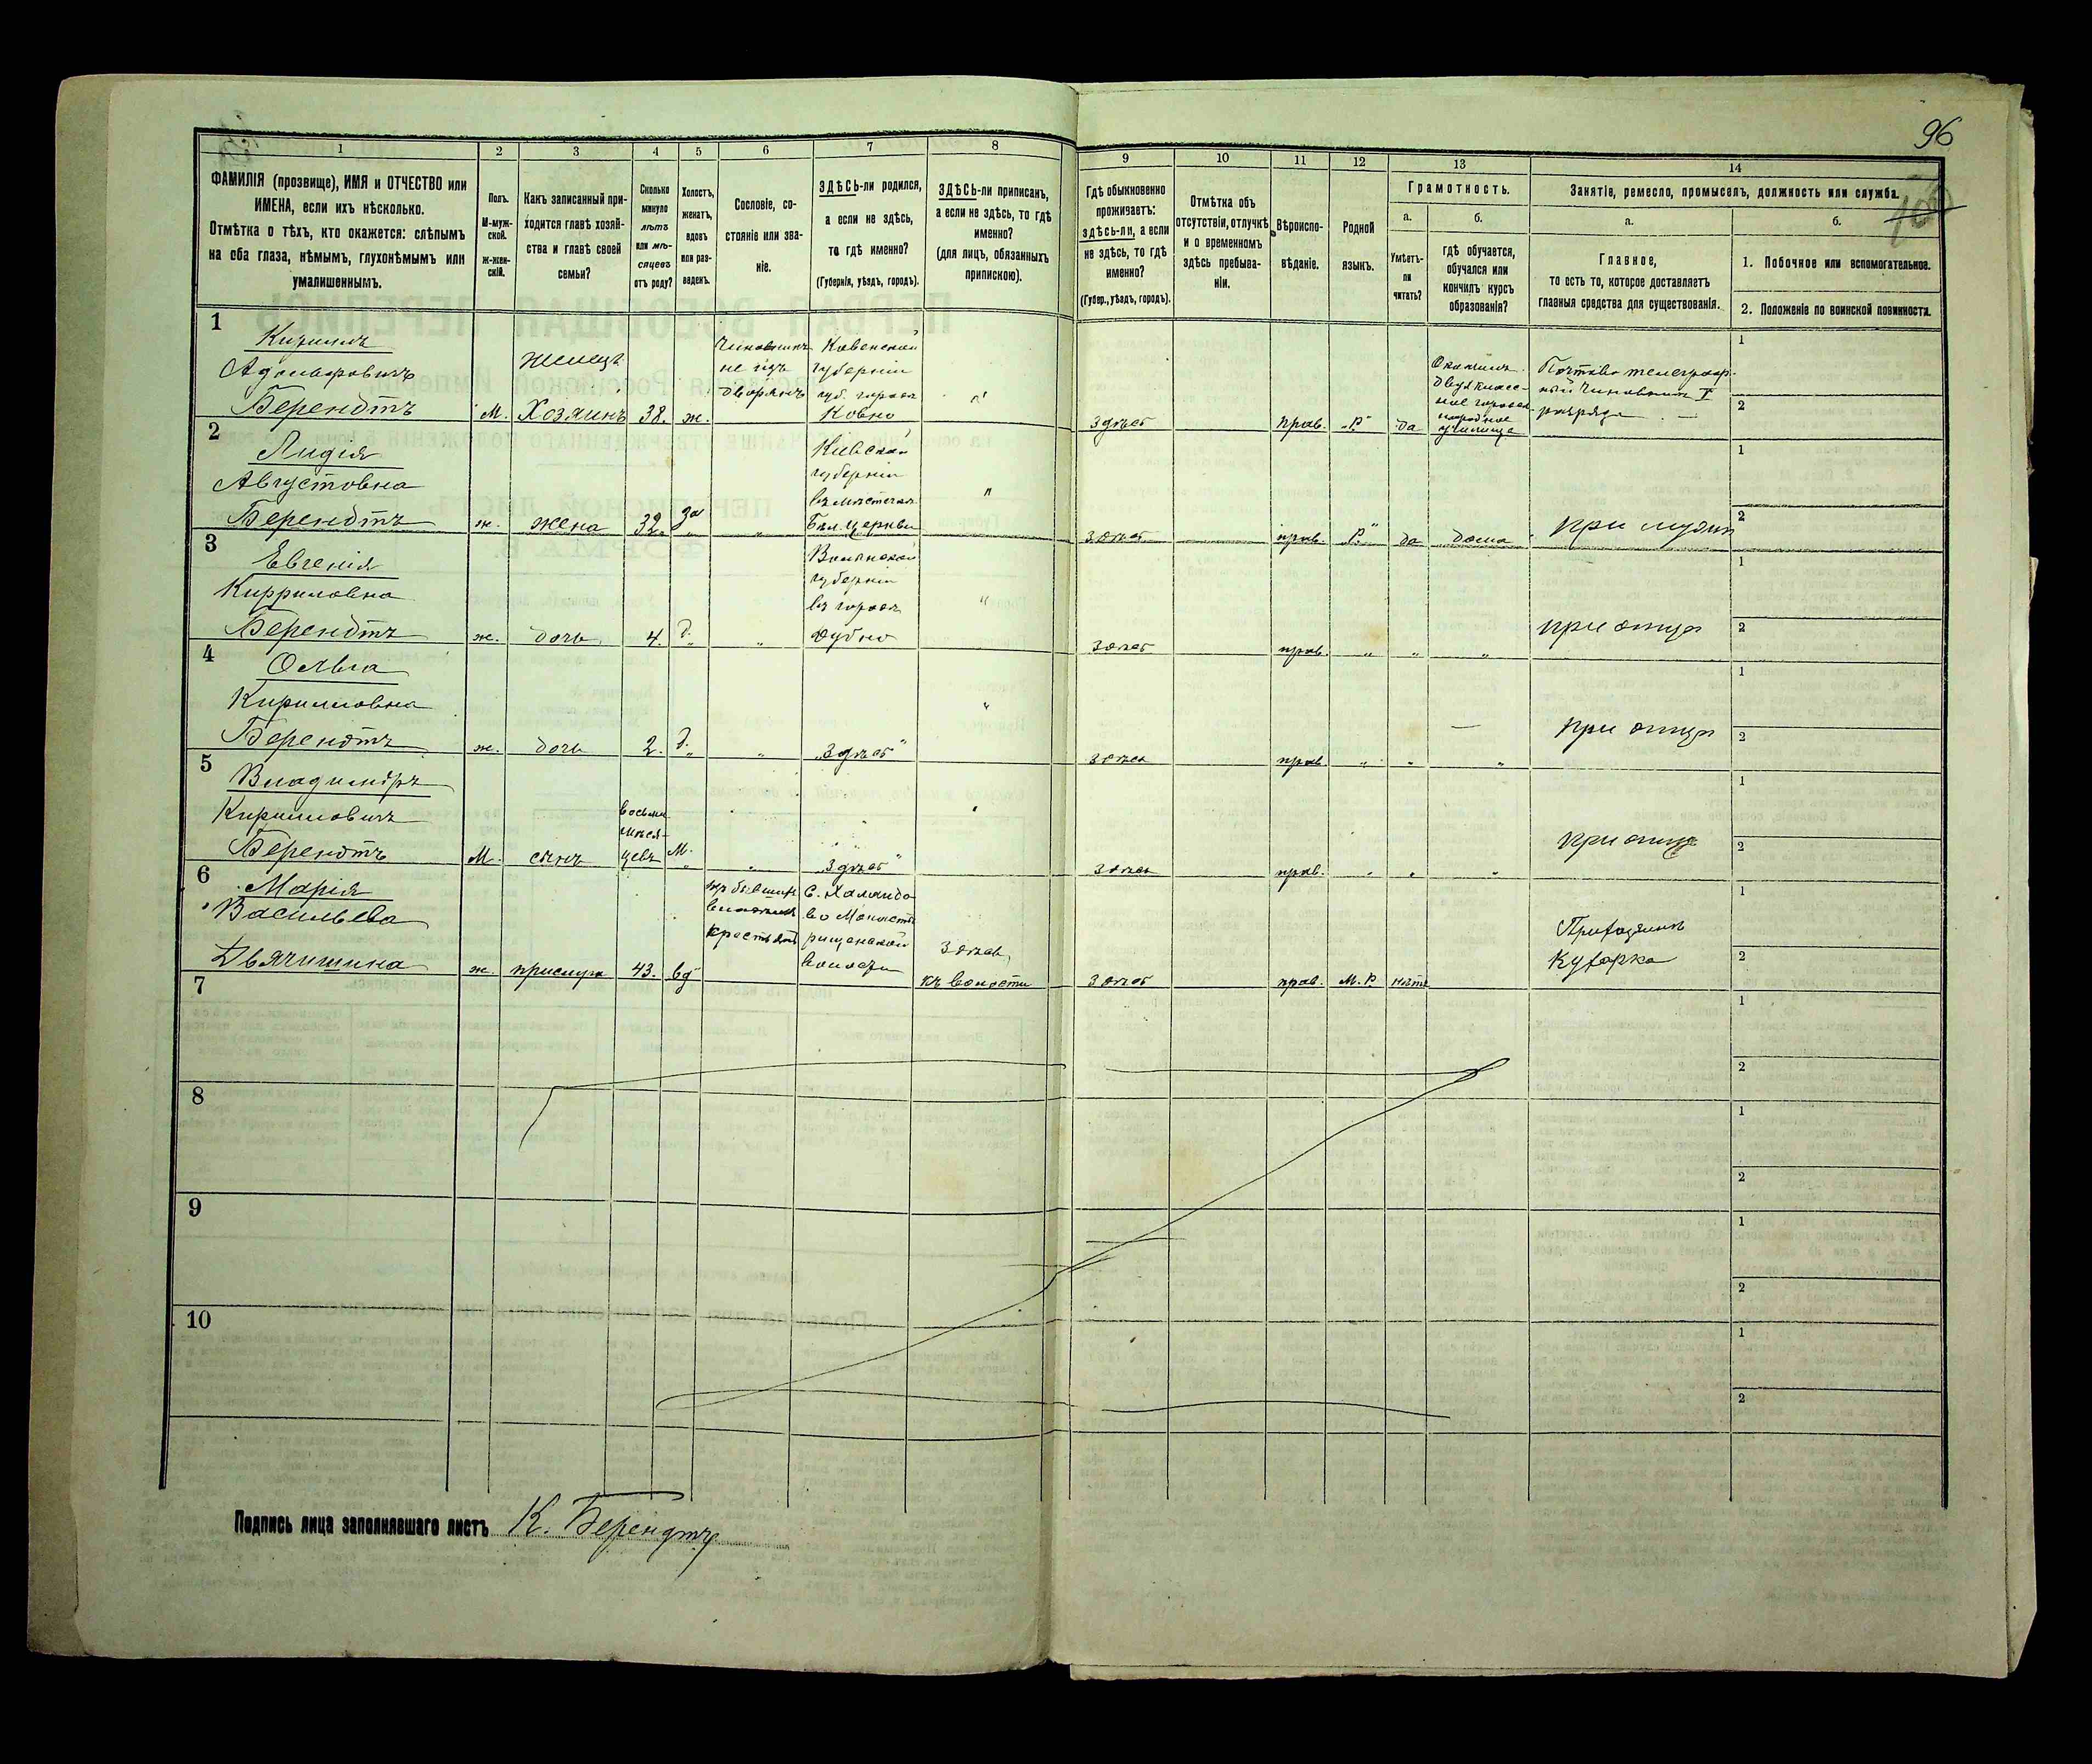 96
1 2 3 4 5 6 7 8 9 10 11 12 13 14
ФАМИЛІЯ (прозвище), ИМЯ и ОТЧЕСТВО или
ИМЕНА, если ихъ нѣсколько.
Отмѣтка о тѣхъ, кто окажется: слѣпымъ
на оба глаза, нѣмымъ, глухонѣмымъ или
умалишеннымъ.
Полъ.
М-муж-
ской.
Ж-жен-
скій.
Какъ записанный при-
ходится главѣ хозяй-
ства и главѣ своей
семьи?
Сколько
минуло
лѣтъ
или мѣ-
сяцевъ
отъ роду?
Холостъ,
женатъ,
вдовъ
или раз-
веденъ.
Сословіе, со-
стояніе или зва-
ніе.
ЗДѢСЬ-ли родился,
а если не здѣсь,
то гдѣ именно?
(Губернія, уѣздъ, городъ).
ЗДѢСЬ-ли приписанъ,
а если не здѣсь, то гдѣ
именно?
(для лицъ, обязанныхъ
припискою).
Гдѣ обыкновенно
проживаетъ:
здѣсь-ли, а если
не здѣсь, то гдѣ
именно?
(Губер., уѣздъ, городъ).
Отмѣтка объ
отсутствіи, отлучкѣ
и о временномъ
здѣсь пребыва-
ніи.
Вѣроиспо-
вѣданіе.
Родной
языкъ.
Грамотность.
а.
Умѣетъ-
ли
читать?
б.
гдѣ обучается,
обучался или
кончилъ курсъ
образованія?
Занятіе, ремесло, промыселъ, должность или служба.
а.
Главное,
то есть то, которое доставляетъ
главныя средства для существованія.
б.
1. Побочное или вспомогательное.
2. Положеніе по воинской повинности.
1
Кириллъ
Адольфовичъ
Берендтъ
М.
жилецъ
Хозяинъ
38.
ж.
Чиновникъ
не изъ
дворянъ
Ковенской
губерніи
губ. городъ
Ковно
"
Здѣсь
прав.
"Р."
да
Окончилъ
двухклас-
ное городск.
народное
училище
Почтово телеграф-
ный Чиновникъ V
разряда
1
2
2
Лидія
Августовна
Берендтъ
ж.
жена
32.
за
"
"
Кіевской
губерніи
въ мѣстечкѣ
Бѣл. Церкви
"
Здѣсь
прав.
"Р."
да
дома
при мужѣ
1
2
3
Евгенія
Кирриловна
Берендтъ
ж.
дочь
4.
д.
"
"
Волынской
губерніи
въ городѣ
Дубно
"
Здѣсь
прав.
"
"
"
при отцѣ
1
2
4
Ольга
Кирилловна
Берендтъ
ж.
дочь
2.
д.
"
"
"Здѣсь"
"
Здѣсь
прав.
"
"
"
при отцѣ
1
2
5
Владиміръ
Кирилловичъ
Берендтъ
М.
сынъ
восемь
мѣся-
цевъ
М.
"
"
"Здѣсь"
"
Здѣсь
прав.
"
"
"
при отцѣ
1
2
6
Марія
Васильева
Дьячишина
ж.
прислуга
43.
вд
изъ бывшихъ
крестьянъ
С. Халаидо-
во Монасты-
рищенской
волости
Здѣсь
къ волости
Здѣсь
прав.
М. Р.
нѣтъ
Кухарка
1
2
7
1
2
8
1
2
9
1
2
10
1
2
Подпись лица заполнявшаго листъ К. Берендтъ